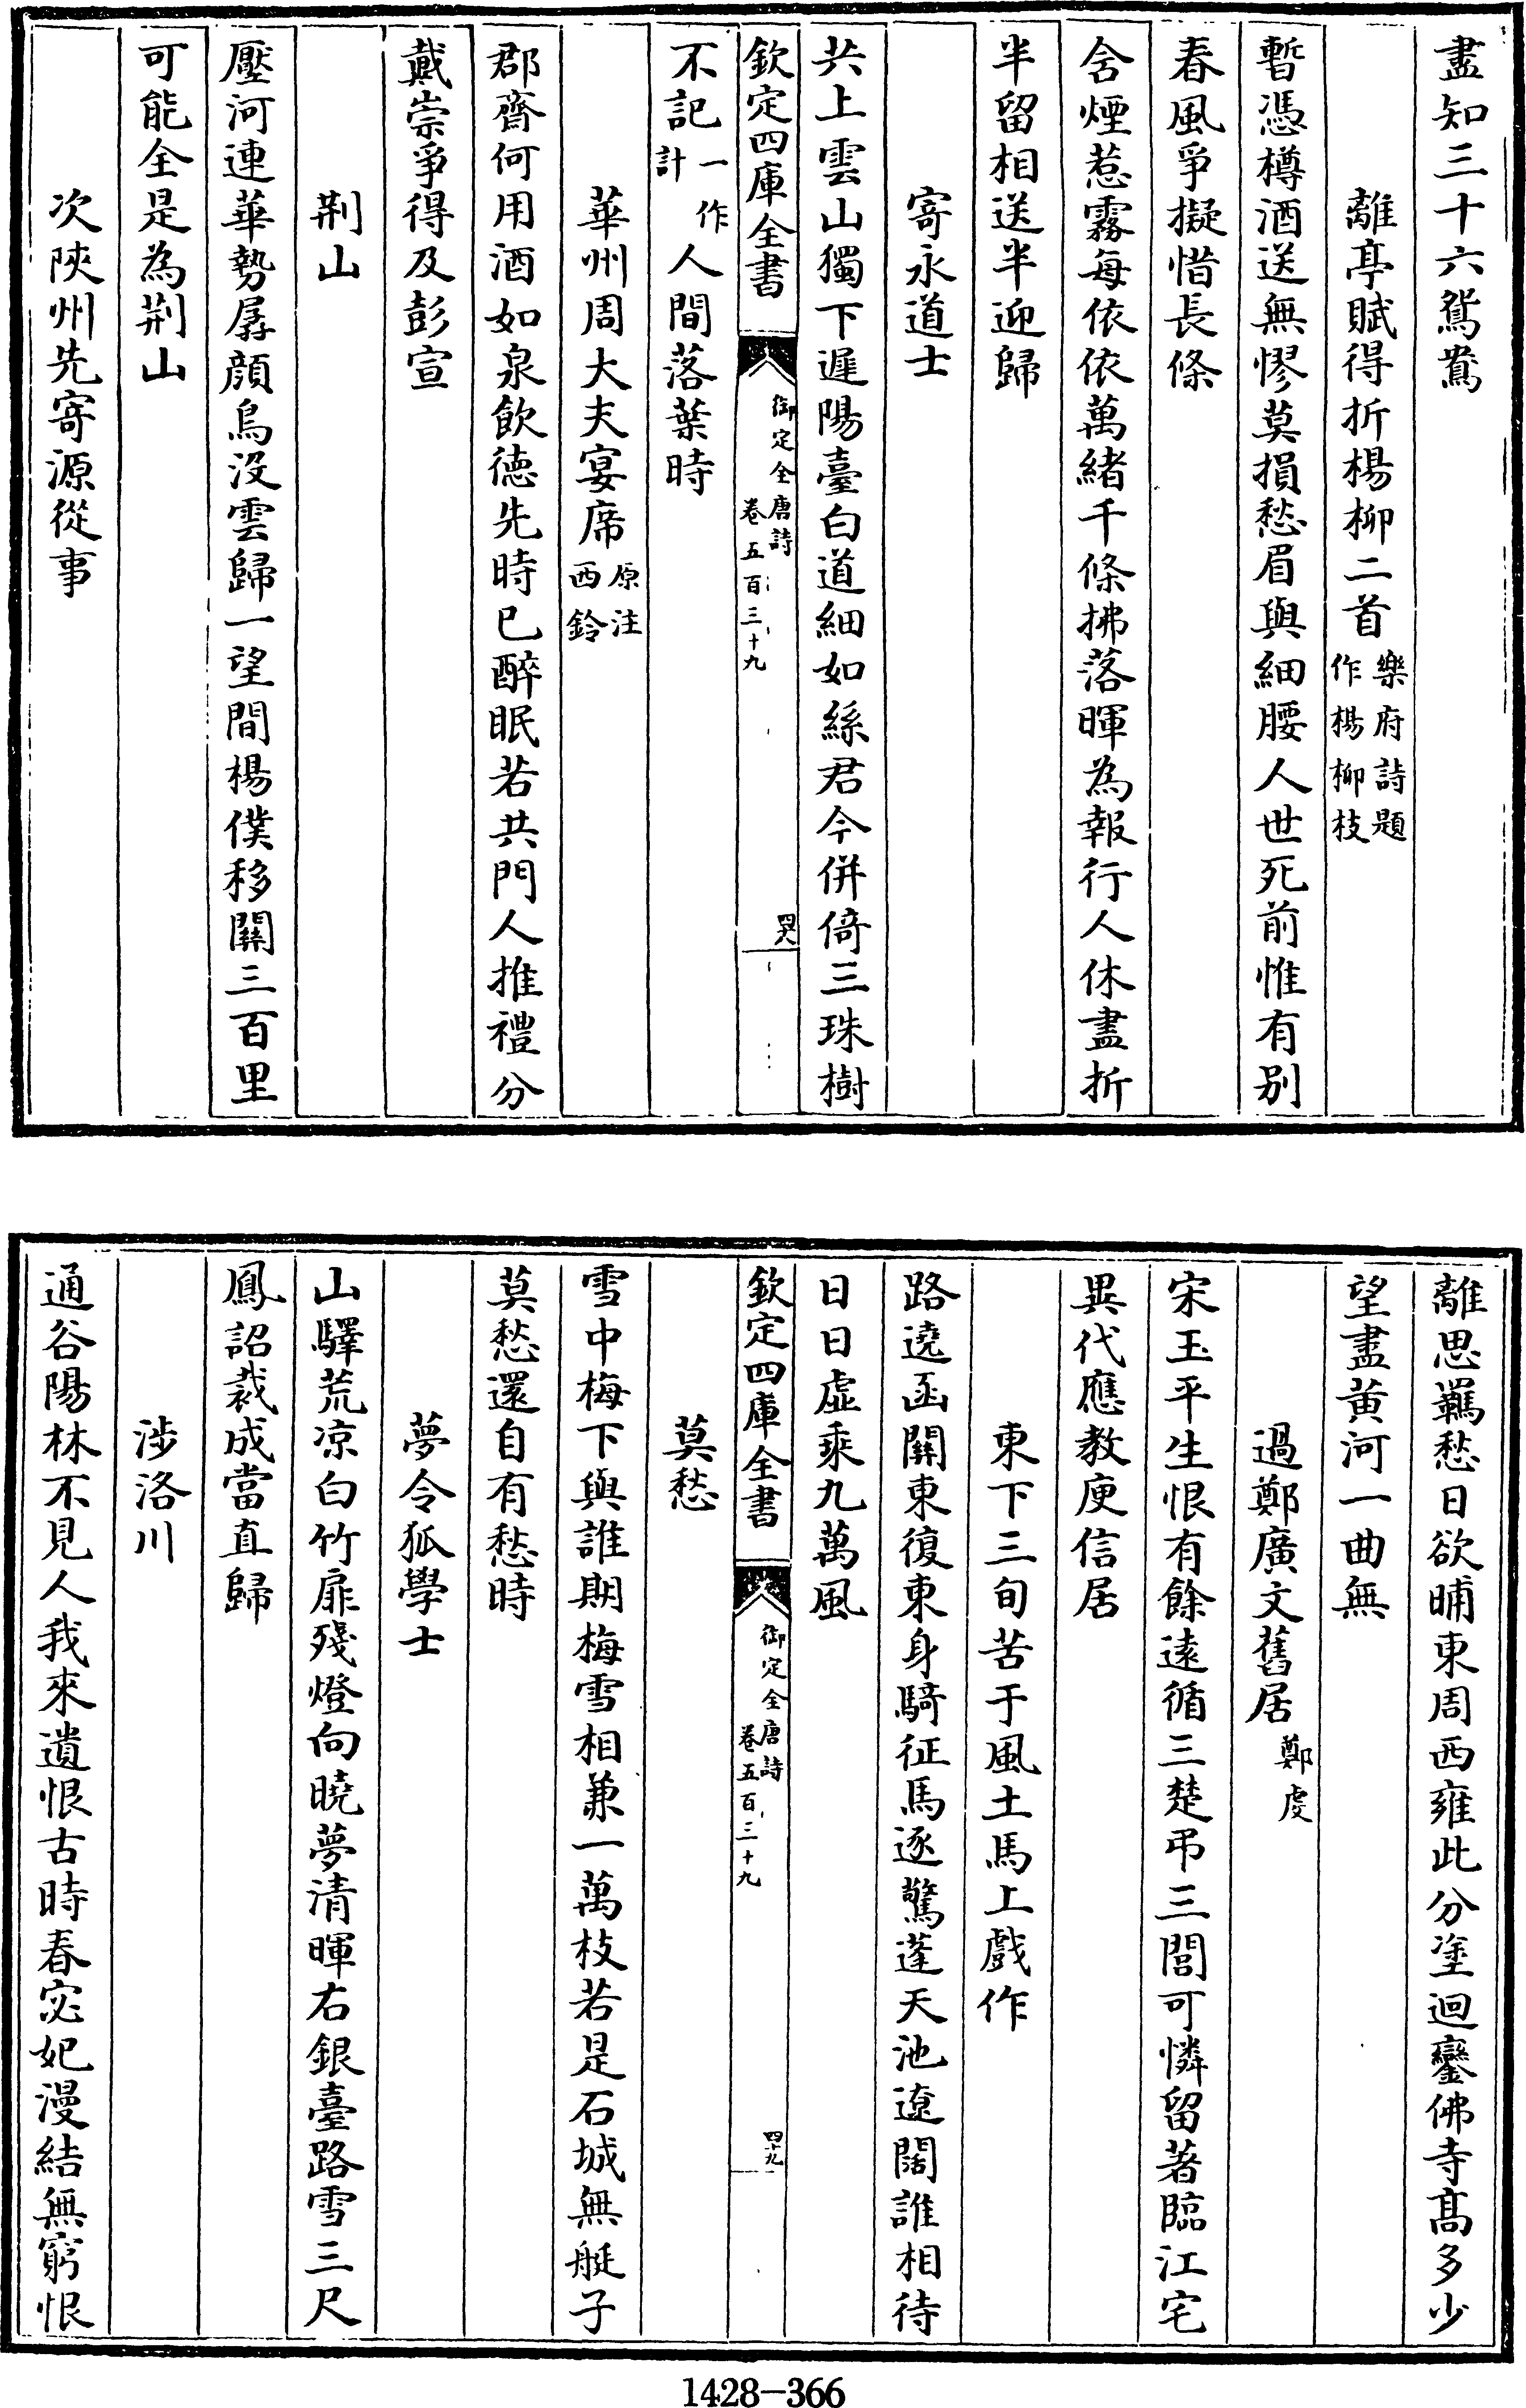 盡知三十六鴛鴦
離亭賦得折楊柳二首樂府詩題作楊柳枝
暫憑樽酒送無憀莫損愁眉與細腰人世死前惟有别
春風爭擬惜長條
含煙惹霧每依依萬緒千條拂落暉為報行人休盡折
半留相送半迎歸
寄永道士
共上雲山獨下遲陽臺白道細如絲君今併倚三珠樹
欽定四庫全書
御定全唐詩
卷五百三十九
四八
不記一作計人間落葉時
華州周大夫宴席原注西銓
郡齋何用酒如泉飲德先時已醉眠若共門人推禮分
戴崇爭得及彭宣
荆山
壓河連華勢孱顏鳥没雲歸一望間楊僕移關三百里
可能全是為荆山
次陜州先寄源從事
離思羈愁日欲晡東周西雍此分塗迴鑾佛寺髙多少
望盡黄河一曲無
過鄭廣文舊居鄭虔
宋玉平生恨有餘遠循三楚弔三閭可憐留著臨江宅
異代應教庾信居
東下三旬苦于風土馬上戲作
路遶函關東復東身騎征馬逐驚蓬天池遼闊誰相待
日日虛乘九萬風
欽定四庫全書
御定全唐詩
卷五百三十九
四十九
莫愁
雪中梅下與誰期梅雪相兼一萬枝若是石城無艇子
莫愁還自有愁時
夢令狐學士
山驛荒凉白竹扉殘燈向曉夢清暉右銀臺路雪三尺
鳳詔裁成當直歸
涉洛川
通谷陽林不見人我來遺恨古時春宓妃漫結無窮恨
1428-366